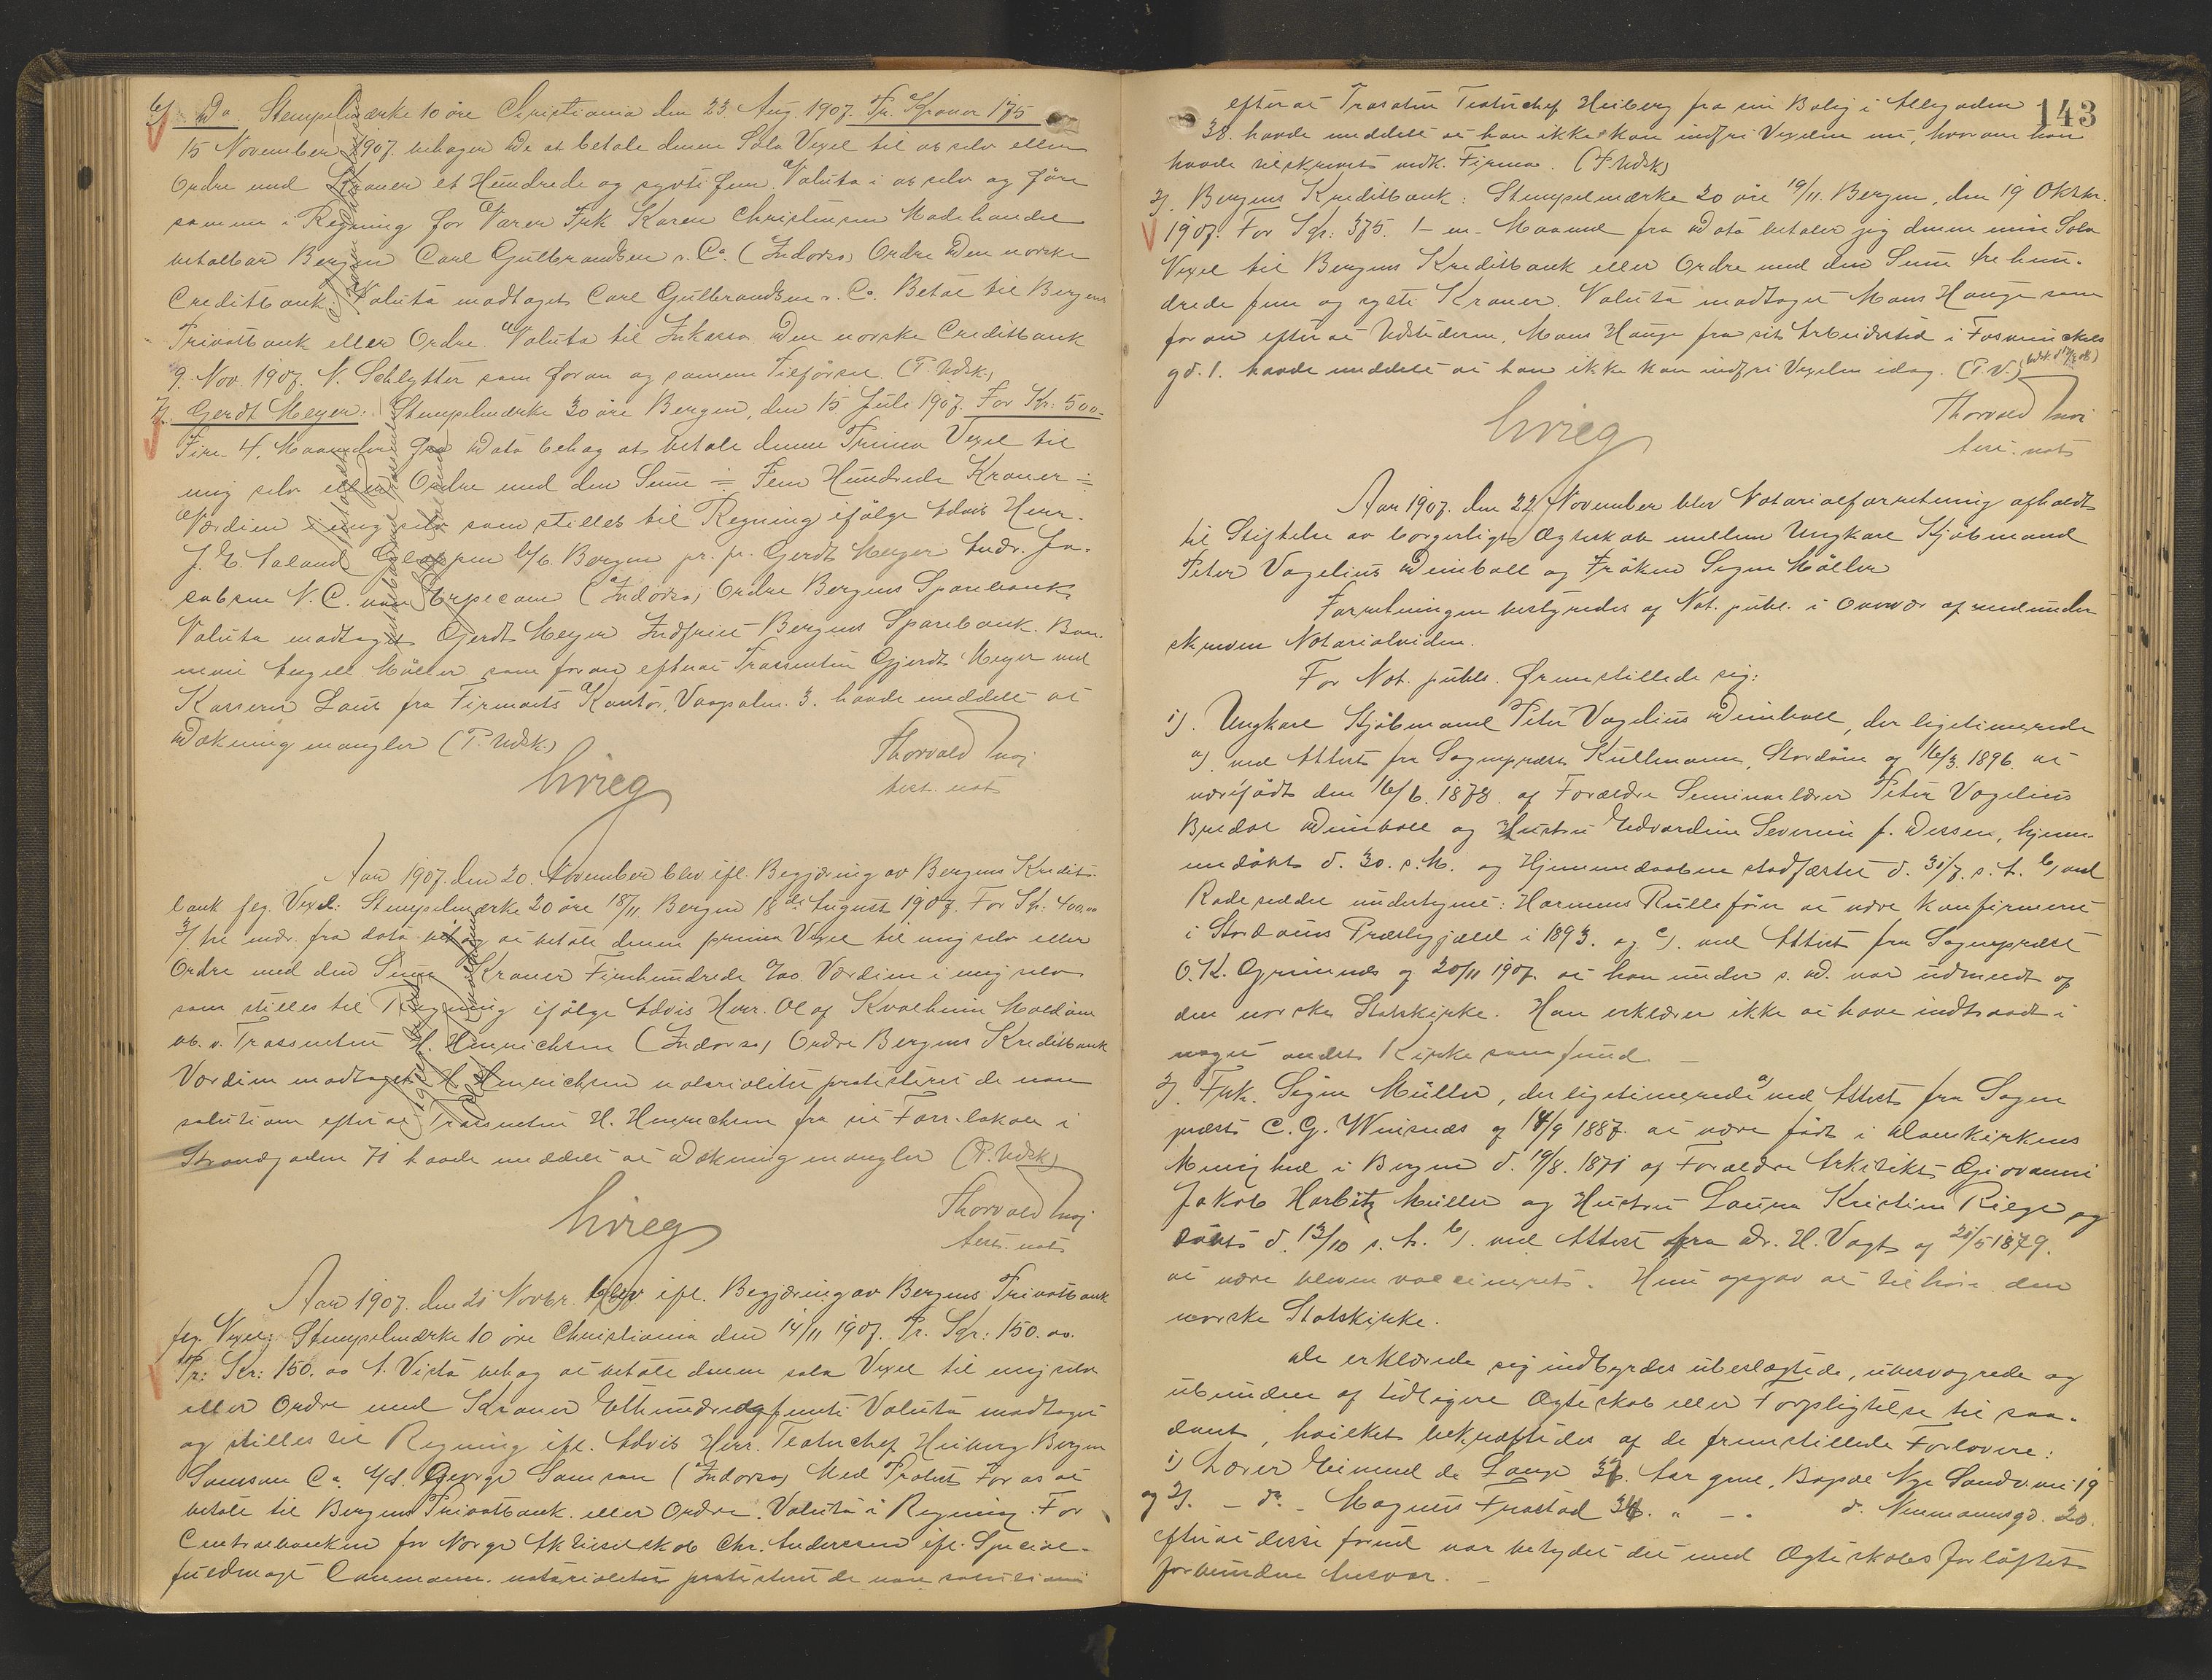 6) Do. Stempelmærke 10 øre Christiania den 23. Aug. 1907. Pr. Kroner 175
15 November 1907. behager De at betale denne Sola Vexel til os selv eller
Ordre med Kroner et Hundrede og sytti fem. Valuta i os selv og före
samme i Regning for Varer Frk Karen Christensen Modehandel
betalbar Bergen Carl Gulbrandsen & Co. (Indorso) Ordre Den norske
Creditbank. Valuta modtaget Carl Gulbrandsen & Co. Betal til Bergens
Privatbank eller Ordre Valuta til Inkasso Den norske Creditbank
9. Nov. 1907. N. Schlytter som foran og samme Tilförsel. (P. Udsk.)
7). Gerdt Meyer: Stempelmærke 30 øre Bergen, den 15 Juli 1907. For Kr: 500-
Fire 4. Maaneder fra Dato behag at betale denne Prima Vexel til
mig selv eller Ordre med den Sum = Fem Hundrede Kroner =
Værdien i mig selv som stilles til Regning ifölge Advis Herr.
J. E. Valand Bergen pr. pr. Gerdt Meyer Andr. Ja-
cobsen N. C. von Erpecom (Indorso) Ordre Bergens Sparebank
Valuta modtaget Gerdt Meyer Indfriet Bergens Sparebank.
Möller som foran efterat Trassenten Gjerdt Meyer ved
Kasserer Laus fra Firmaets Kontor, Vaagsalm. 3. havde meddelt at
Dækning mangler (P. Udsk.)
Thorvald
test. not
Aar 1907. den 20. November blev ifl. Begjæring av Bergens Kredit-
bank flg. Vexel: Stempelmærke 20 øre 18/11 Bergen 18de August 1907. For Kr: 400,00
3/ tre mdr. fra dato behag at betale denne prima Vexel til mig selv eller
Ordre med den Sum Kroner Firehundrede %oo Værdien i mig selv
som stilles til Regning ifölge Advis Herr. Olaf Kvalheim Maldöen
ab. v. Trassenten H. Henrichsen (Indorso) Ordre Bergens Kreditbank
Værdien modtaget H. Henrichsen notarialiter protesteret de non
solutione efterat Trassenten H. Henrichsen fra sit Forr.lokale i
Strandgaden 71 havde meddelt at Dækning mangler (P. Udsk)
Thorvald
test. not
Aar 1907. den 21 Novbr. blev ifl. Begjæring av Bergens Privatbank
flg. Vexel: Stempelmærke 10 øre Christiania den 14/11 1907. Pr. Kr: 150. oo.
Pr: Kr: 150. oo A. Vista behag at betale denne sola Vexel til mig selv
eller Ordre med Kroner Ethundredogfemti Valuta modtaget
og stilles til Regning ifl. Advis Herr. Teaterchef Heiberg Bergen
Samson Co. A/S. George Samson (Indorso) Med Protest For os at
betale til Bergens Privatbank eller Ordre. Valuta i Regning. For
Centralbanken for Norge Aktieselskab Chr. Anderssen ifl. Special-
fuldmagt notarialiter protesteret de non solutione
143
efterat Trasaten Teaterchef Heiberg fra sin Bolig i Allégaden
38. havde meddelt at han ikke kan indfri Vexelen nu, hvorom han
havde tilskrevet vedk. Firma. (P. Udsk)
2). Bergens Kreditbank: Stempelmærke 20 øre 19/11. Bergen, den 19 Oktbr.
1907. For Kr: 375. 1- en- Maaned fra Dato betaler jeg denne min Sola
Vexel til Bergens Kreditbank eller Ordre med den Sum tre hun-
drede fem og sytti Kroner. Valuta modtaget Mons Hauge som
foran efterat Udstederen, Mons Hauge fra sit Arbeidssted i Fosswinckels
gd. 1. havde meddelt at han ikke kan indfri Vexelen idag. (P. U.)
Thorvald
test. not
Aar 1907. den 22 November blev Notarialforretning afholdt
til Stiftelse av borgerligt Ægteskab mellem Ungkarl Kjöbmand
Peter Vogelius Deinboll og Fröken Signe Möller
Forretningen bestyredes af Not. publ. i Overvær af medunder
skreven Notarialvidne.
For Not. publ. fremstillede sig:
1). Ungkarl Kjöbmand Peter Vogelius Deinboll, der legitimerede
a). ved Attest fra Sogneprest Kullmann, Stordöen af 16/3. 1896. at
være födt den 16/6. 1878. af Forældre Seminarlærer Peter Vogelius
Bredal Deinboll og Hustru Edvardine Severine f. Dessen, hjem-
medöbt d. 30. s. M. og Hjemmedaaben stadfæstet d. 31/7. s. A. b) ved
Rade seddel undertegnet: Harmens Rulleförer at være konfirmeret
i Stordöens Præstegjæld i 1893. og c). ved Attest fra Sogneprest
O. K. Grimnes af 20/11 1907. at han under s. D. var udmeldt af
den norske Statskirke. Han erklærer ikke at have indtraadt i
noget andet Kirkesamfund. -
2). Frk. Signe Müller, der legitimerede a) ved Attest fra Sogne
prest C. G. Wiisnæs af 14/9 1887. at være född i Domkirkens
Menighed i Bergen d. 19/8. 1871 af Forældre Arkitekt Giovanni
Jakob Harbitz Müller og Hustru Laura Kristine Riege og
döbt d. 13/10 s. A. b). ved Attest fra Dr. H. Vogt af 21/5 1879.
at være bleven vaccineret. Hun opgav at tilhöre den
norske Statskirke.
De erklærede sig indbyrdes ubeslægtede, ubesvogrede og
ubunden af tidligere Ægteskab eller Forpligtelse til saa-
dant, hvilket bekræftedes af de fremstillede Forlovere:
1) Lærer Eimund de Lange 36. Aar gml. Bopæl Nye Sandv.vei 19
og 2). - do - Magnus Frostad 34. " - " d. Neumannsgd. 20.
efterat disse forud var betydet det med Ægteskabs forlöftet
forbundne Ansvar. -